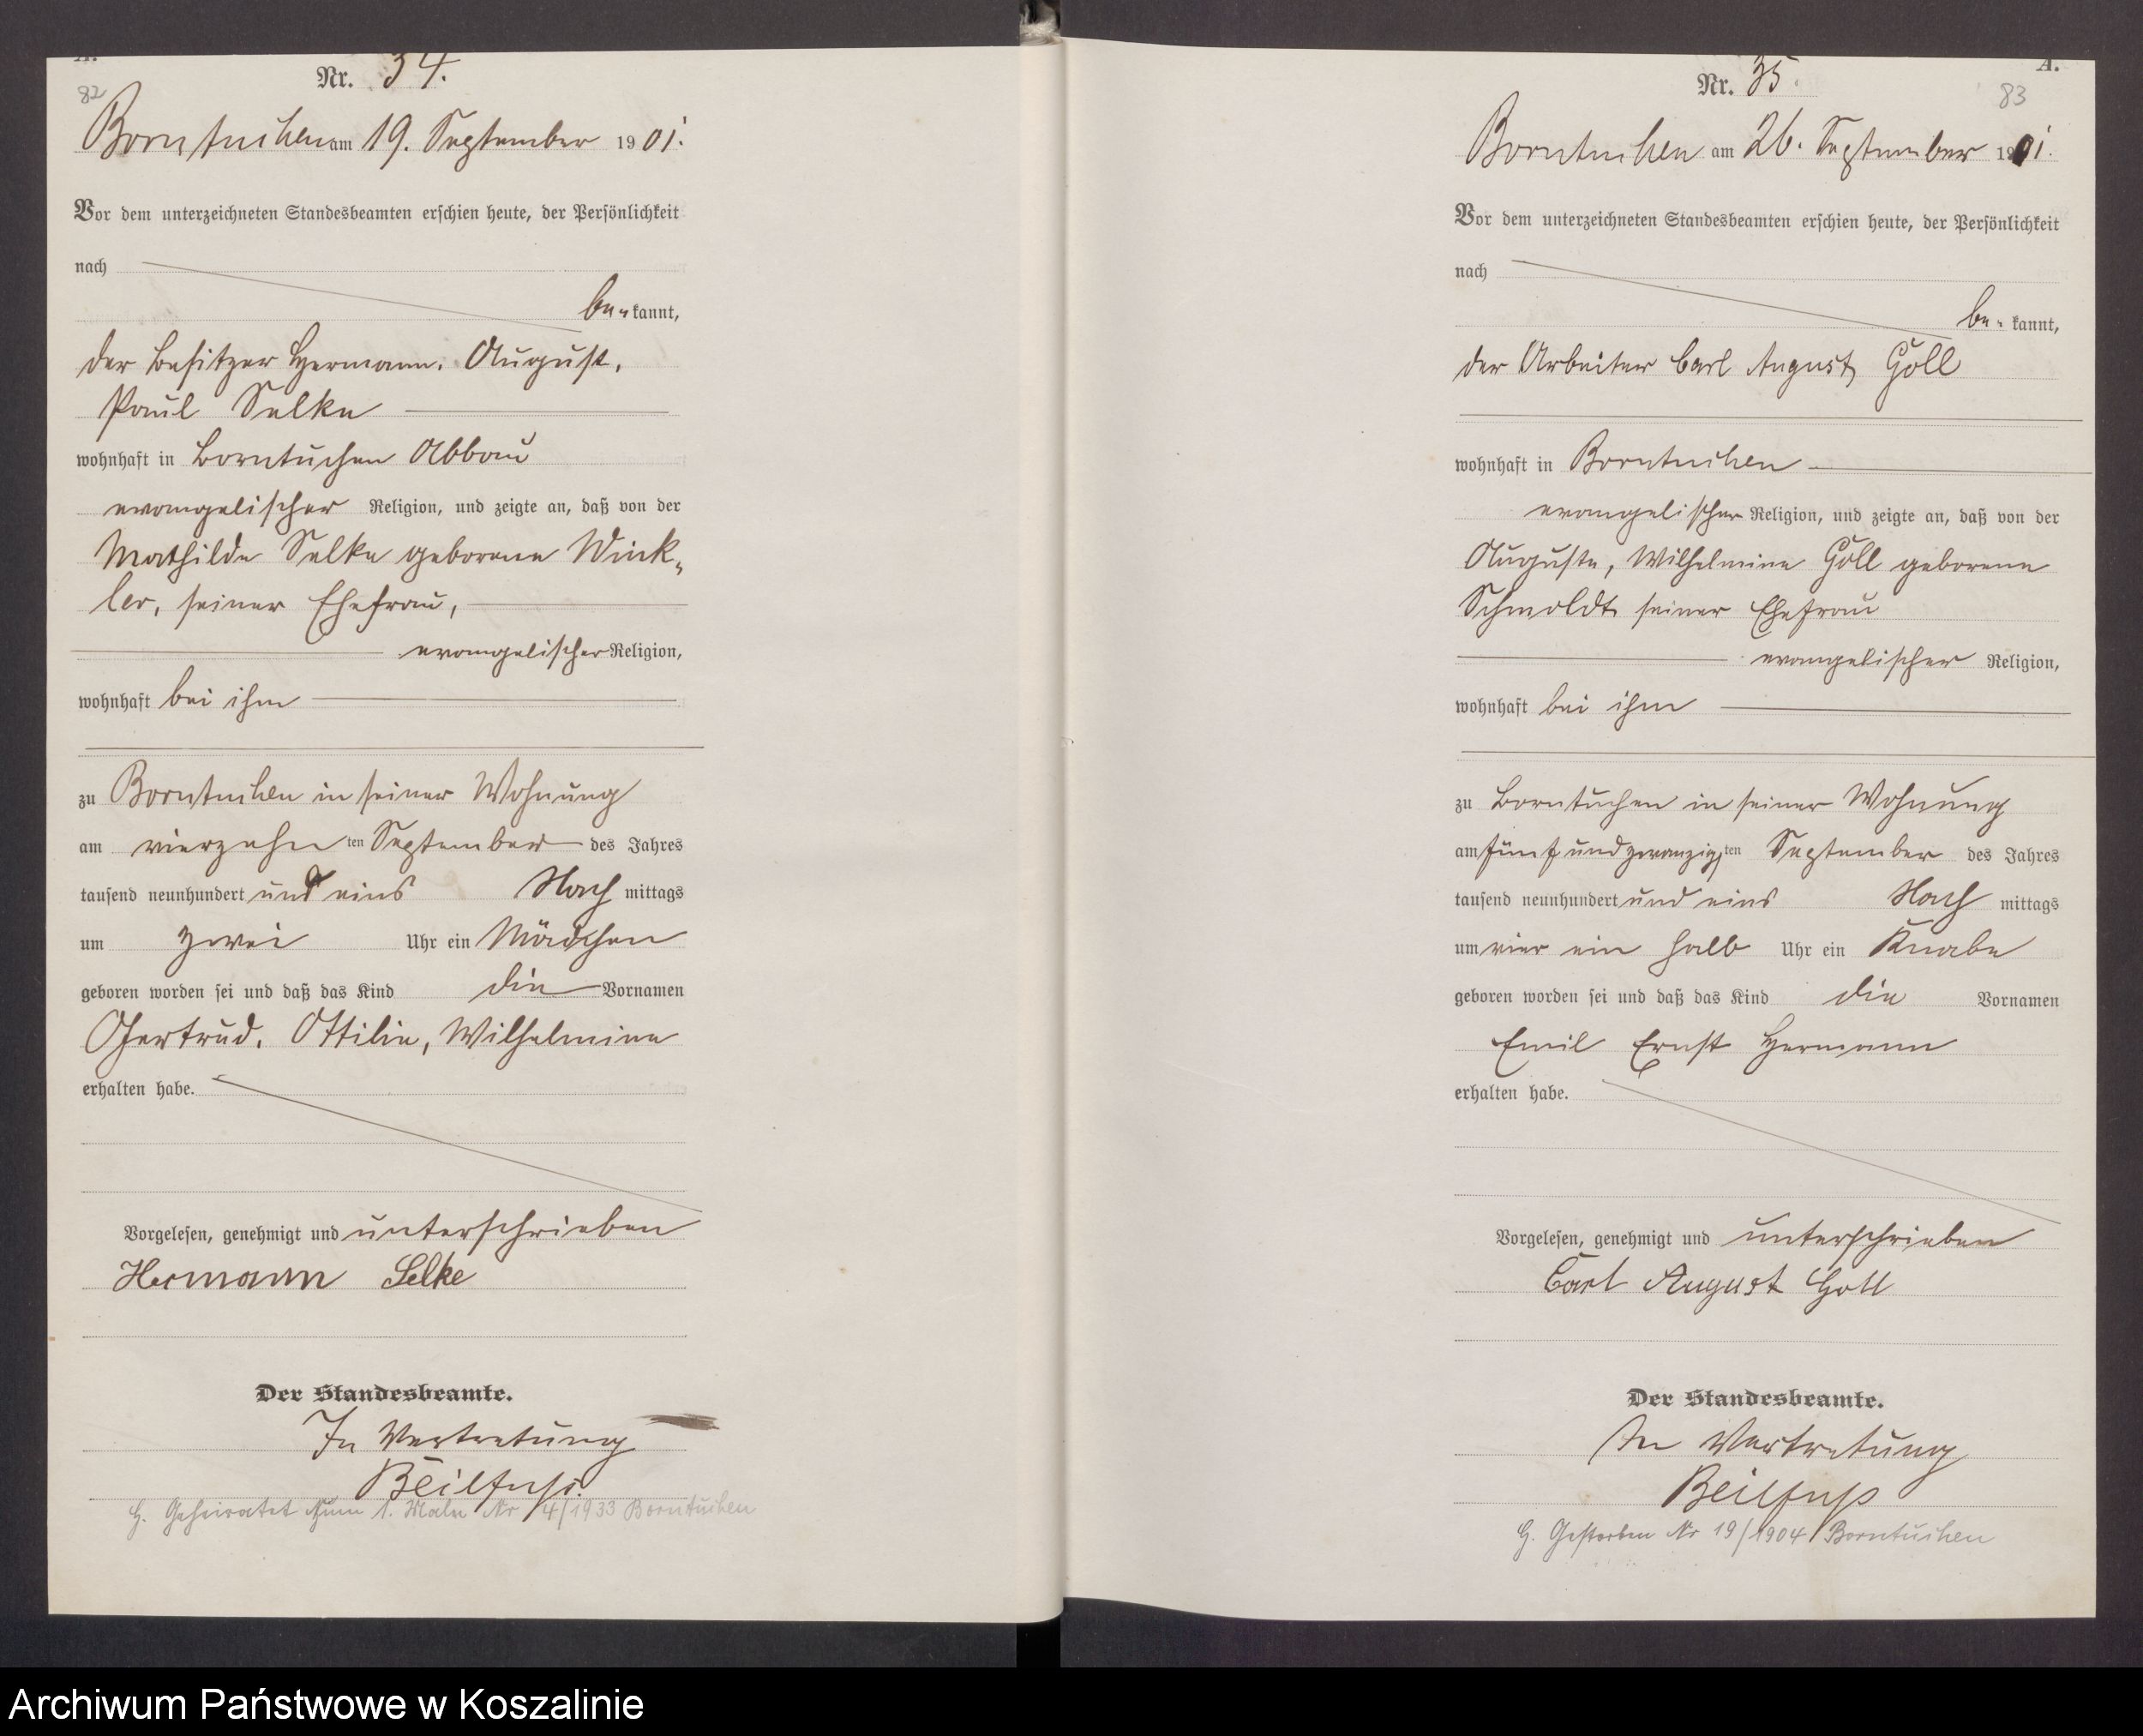 A.
Nr. 34.
82
Borntuchen am 19. September 1901.
Vor dem unterzeichneten Standesbeamten erschien heute, der Persönlichkeit
nach
be=kannt,
der Besitzer Hermann, August,
Paul Selke
wohnhaft in Borntuchen Abbau
evangelischer Religion, und zeigte an, daß von der
Mathilde Selke geborene Wink=
ler, seiner Ehefrau,
evangelischer Religion,
wohnhaft bei ihm
zu Borntuchen in seiner Wohnung
am vierzehn ten September des Jahres
tausend neunhundert und eins Nach mittags
um zwei Uhr ein Mädchen
geboren worden sei und daß das Kind die Vornamen
Gertrud, Ottilie, Wilhelmine
erhalten habe.
Vorgelesen, genehmigt und unterschrieben
Hermann Selke
Der Standesbeamte.
In Vertretung
Beilfuß.
G. Geheiratet zum 1. Male Nr 4/1933 Borntuchen
A.
Nr. 35.
83
Borntuchen am 26. September 1901.
Vor dem unterzeichneten Standesbeamten erschien heute, der Persönlichkeit
nach
be=kannt,
der Arbeiter Carl August Goll
wohnhaft in Borntuchen
evangelischer Religion, und zeigte an, daß von der
Auguste, Wilhelmine Goll geborene
Schmoldt seiner Ehefrau
evangelischer Religion,
wohnhaft bei ihm
zu Borntuchen in seiner Wohnung
am fünf und zwanzigs ten September des Jahres
tausend neunhundert und eins Nach mittags
um vier ein halb Uhr ein Knabe
geboren worden sei und daß das Kind die Vornamen
Emil Ernst Hermann
erhalten habe.
Vorgelesen, genehmigt und unterschrieben
Carl August Goll
Der Standesbeamte.
In Vertretung
Beilfuß
G. Gestorben Nr 19/1904 Borntuchen
Archiwum Państwowe w Koszalinie